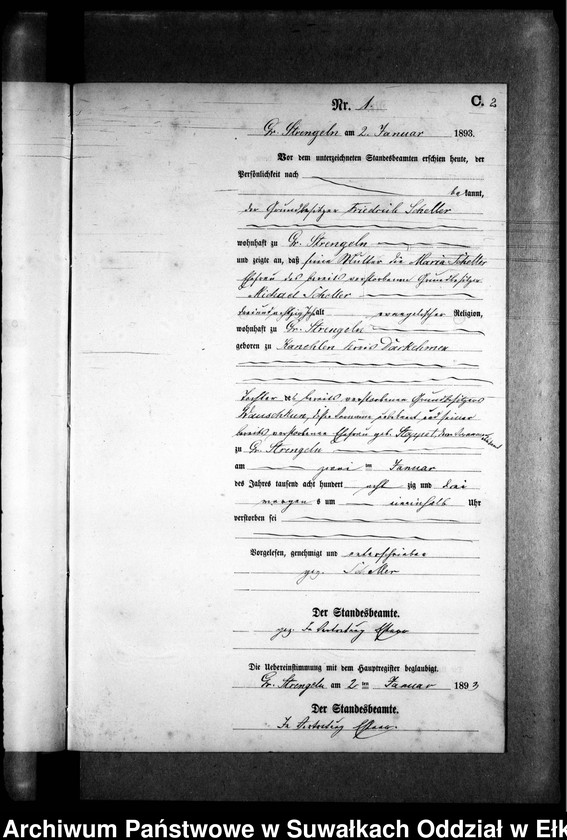 C. 2
Nr. 1.
Gr. Strengeln am 2. Januar 1893.
Vor dem unterzeichneten Standesbeamten erschien heute, der
Persönlichkeit nach
bekannt,
der Grundbesitzer Friedrich Scheller
wohnhaft zu Gr. Strengeln
und zeigte an, daß seine Mutter die Maria Scheller
Ehefrau des bereits verstorbenen Grundbesitzer
Michael Scheller
dreiundachtzig Jahr alt evangelischer Religion,
wohnhaft zu Gr. Strengeln
geboren zu Kreis Darkehmen
Tochter des bereits verstorbenen Grundbesitzers
und seiner
bereits verstorbenen Ehefrau geb.
zu Gr. Strengeln
am zwei ten Januar
des Jahres tausend acht hundert zig und drei
morgens um Uhr
verstorben sei
Vorgelesen, genehmigt und unterschrieben
gez. Scheller
Der Standesbeamte.
gez. In Vertretung
Die Uebereinstimmung mit dem Hauptregister beglaubigt.
Gr. Strengeln am 2 ten Januar 1893
Der Standesbeamte.
In Vertretung
Archiwum Państwowe w Suwałkach Oddział w Ełk